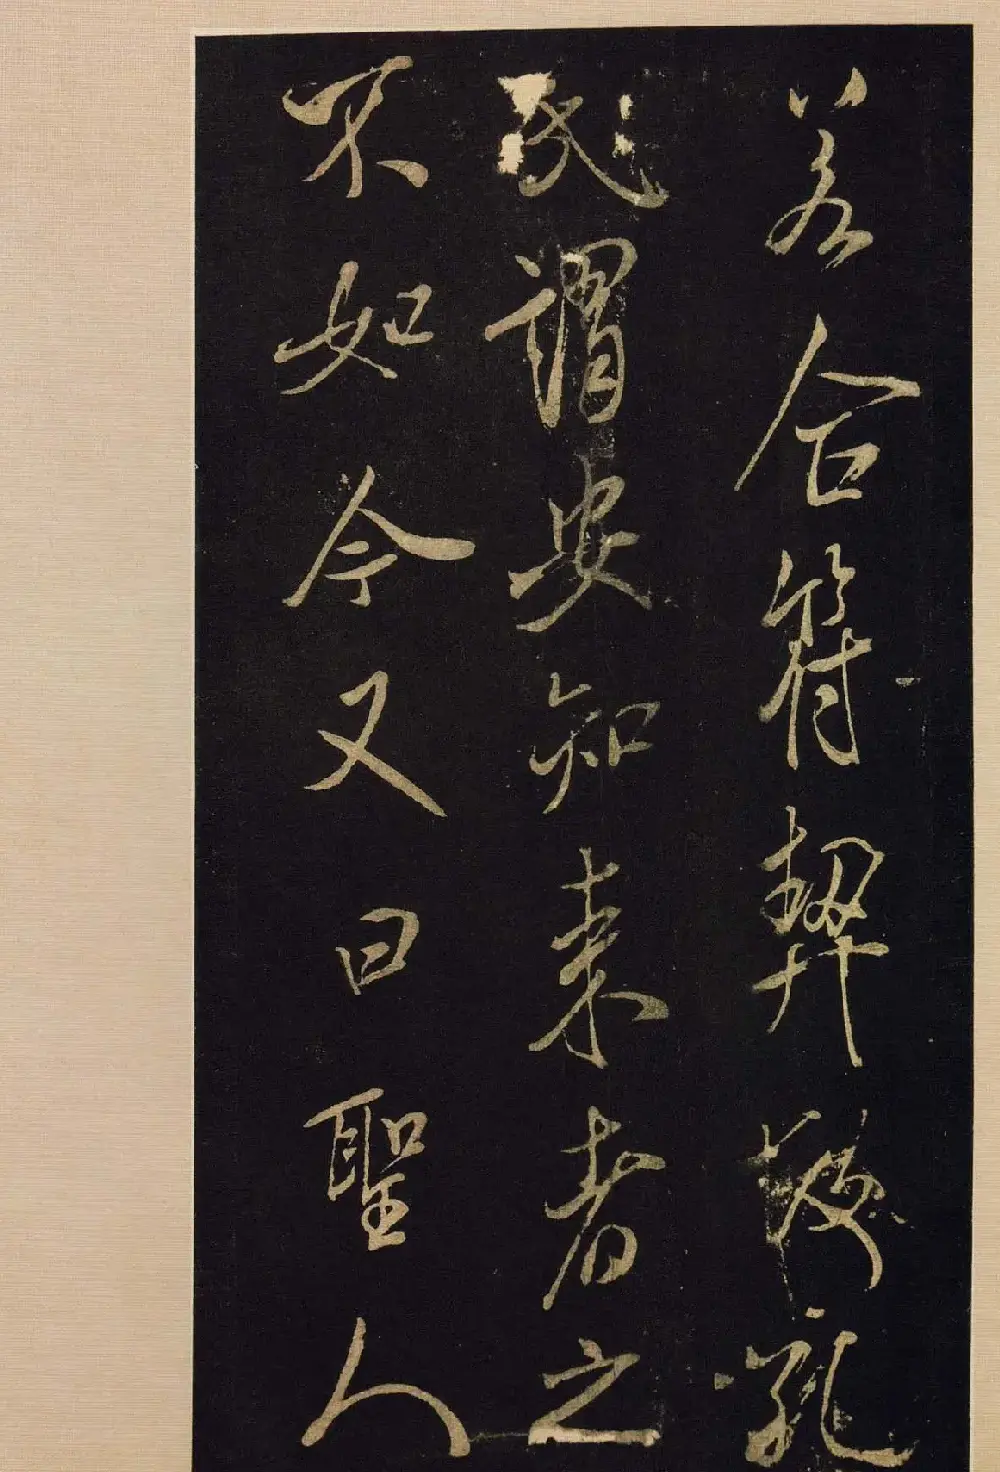 若合符契後孔
氏謂安知来者之
不如今又曰聖人